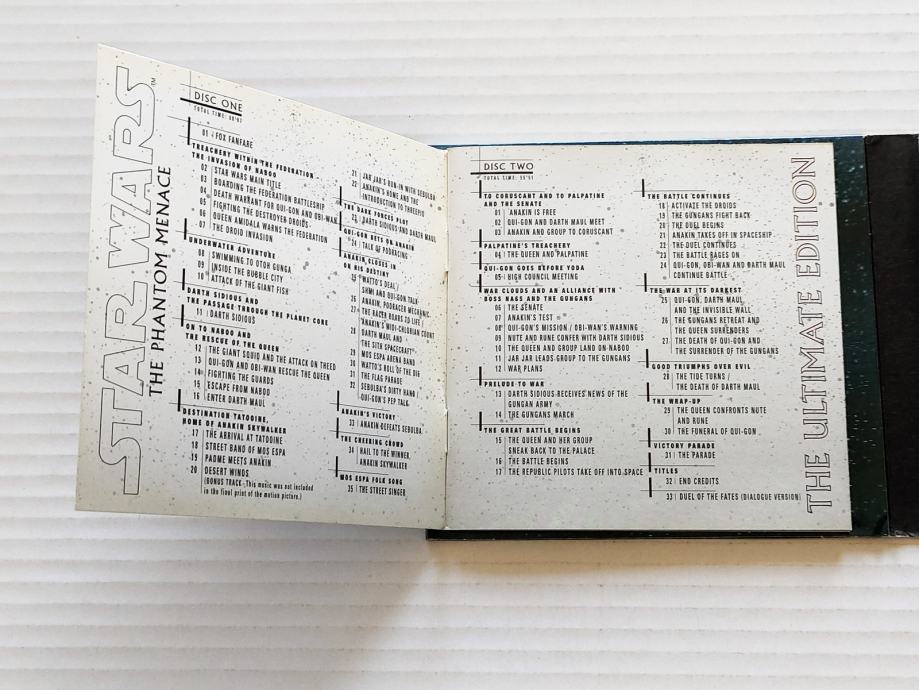 STAR WARS™
THE PHANTOM MENACE
DISC ONE
01 FOX FANFARE
TREACHERY WITHIN THE FEDERATION
THE INVASION OF NABOO
02 STAR WARS MAIN TITLE
03 BOARDING THE FEDERATION BATTLESHIP
04 DEATH WARRANT FOR QUI-GON AND OBI-WAN
05 FIGHTING THE DESTROYER DROIDS
06 QUEEN AMIDALA WARNS THE FEDERATION
07 THE DROID INVASION
UNDERWATER ADVENTURE
08 SWIMMING TO OTOH GUNGA
09 INSIDE THE BUBBLE CITY
10 ATTACK OF THE GIANT FISH
DARTH SIDIOUS AND
THE PASSAGE THROUGH THE PLANET CORE
11 DARTH SIDIOUS
ON TO NABOO AND
THE RESCUE OF THE QUEEN
12 THE GIANT SQUID AND THE ATTACK ON THEED
13 QUI-GON AND OBI-WAN RESCUE THE QUEEN
14 FIGHTING THE GUARDS
15 ESCAPE FROM NABOO
16 ENTER DARTH MAUL
DESTINATION TATOOINE
HOME OF ANAKIN SKYWALKER
17 THE ARRIVAL AT TATOOINE
18 STREET BAND OF MOS ESPA
19 PADME MEETS ANAKIN
20 DESERT WINDS
(BONUS TRACK - This music was not included
in the final print of the motion picture.)
21 JAR JAR'S RUN-IN WITH SEBULBA
22 ANAKIN'S HOME AND THE
INTRODUCTION TO THREEPIO
THE DARK FORCES PLOT
23 DARTH SIDIOUS AND DARTH MAUL
QUI-GON BETS ON ANAKIN
24 TALK OF PODRACING
ANAKIN CLOSES IN
ON HIS DESTINY
25 WATTO'S DEAL /
SHMI AND QUI-GON TALK
26 ANAKIN, PODRACER MECHANIC
27 THE RACER ROARS TO LIFE /
ANAKIN'S MIDI-CHLORIAN COUNT
28 DARTH MAUL AND
THE SITH SPACECRAFT
29 MOS ESPA ARENA BAND
30 WATTO'S ROLL OF THE DIE
31 THE FLAG PARADE
32 SEBULBA'S DIRTY HAND /
QUI-GON'S PEP TALK
ANAKIN'S VICTORY
33 ANAKIN DEFEATS SEBULBA
THE CHEERING CROWD
34 HAIL TO THE WINNER,
ANAKIN SKYWALKER
MOS ESPA FOLK SONG
35 THE STREET SINGER
DISC TWO
TO CORUSCANT AND TO PALPATINE
AND THE SENATE
01 ANAKIN IS FREE
02 QUI-GON AND DARTH MAUL MEET
03 ANAKIN AND GROUP TO CORUSCANT
PALPATINE'S TREACHERY
04 THE QUEEN AND PALPATINE
QUI-GON GOES BEFORE YODA
05 HIGH COUNCIL MEETING
WAR CLOUDS AND AN ALLIANCE WITH
BOSS NASS AND THE GUNGANS
06 THE SENATE
07 ANAKIN'S TEST
08 QUI-GON'S MISSION / OBI-WAN'S WARNING
09 NUTE AND RUNE CONFER WITH DARTH SIDIOUS
10 THE QUEEN AND GROUP LAND ON NABOO
11 JAR JAR LEADS GROUP TO THE GUNGANS
12 WAR PLANS
PRELUDE TO WAR
13 DARTH SIDIOUS RECEIVES NEWS OF THE
GUNGAN ARMY
14 THE GUNGANS MARCH
THE GREAT BATTLE BEGINS
15 THE QUEEN AND HER GROUP
SNEAK BACK TO THE PALACE
16 THE BATTLE BEGINS
17 THE REPUBLIC PILOTS TAKE OFF INTO SPACE
THE BATTLE CONTINUES
18 ACTIVATE THE DROIDS
19 THE GUNGANS FIGHT BACK
20 THE DUEL BEGINS
21 ANAKIN TAKES OFF IN SPACESHIP
22 THE DUEL CONTINUES
23 THE BATTLE RAGES ON
24 QUI-GON, OBI-WAN AND DARTH MAUL
CONTINUE BATTLE
THE WAR AT ITS DARKEST
25 QUI-GON, DARTH MAUL
AND THE INVISIBLE WALL
26 THE GUNGANS RETREAT AND
THE QUEEN SURRENDERS
27 THE DEATH OF QUI-GON AND
THE SURRENDER OF THE GUNGANS
GOOD TRIUMPHS OVER EVIL
28 THE TIDE TURNS /
THE DEATH OF DARTH MAUL
THE WRAP-UP
29 THE QUEEN CONFRONTS NUTE
AND RUNE
30 THE FUNERAL OF QUI-GON
VICTORY PARADE
31 THE PARADE
TITLES
32 END CREDITS
33 DUEL OF THE FATES (DIALOGUE VERSION)
THE ULTIMATE EDITION